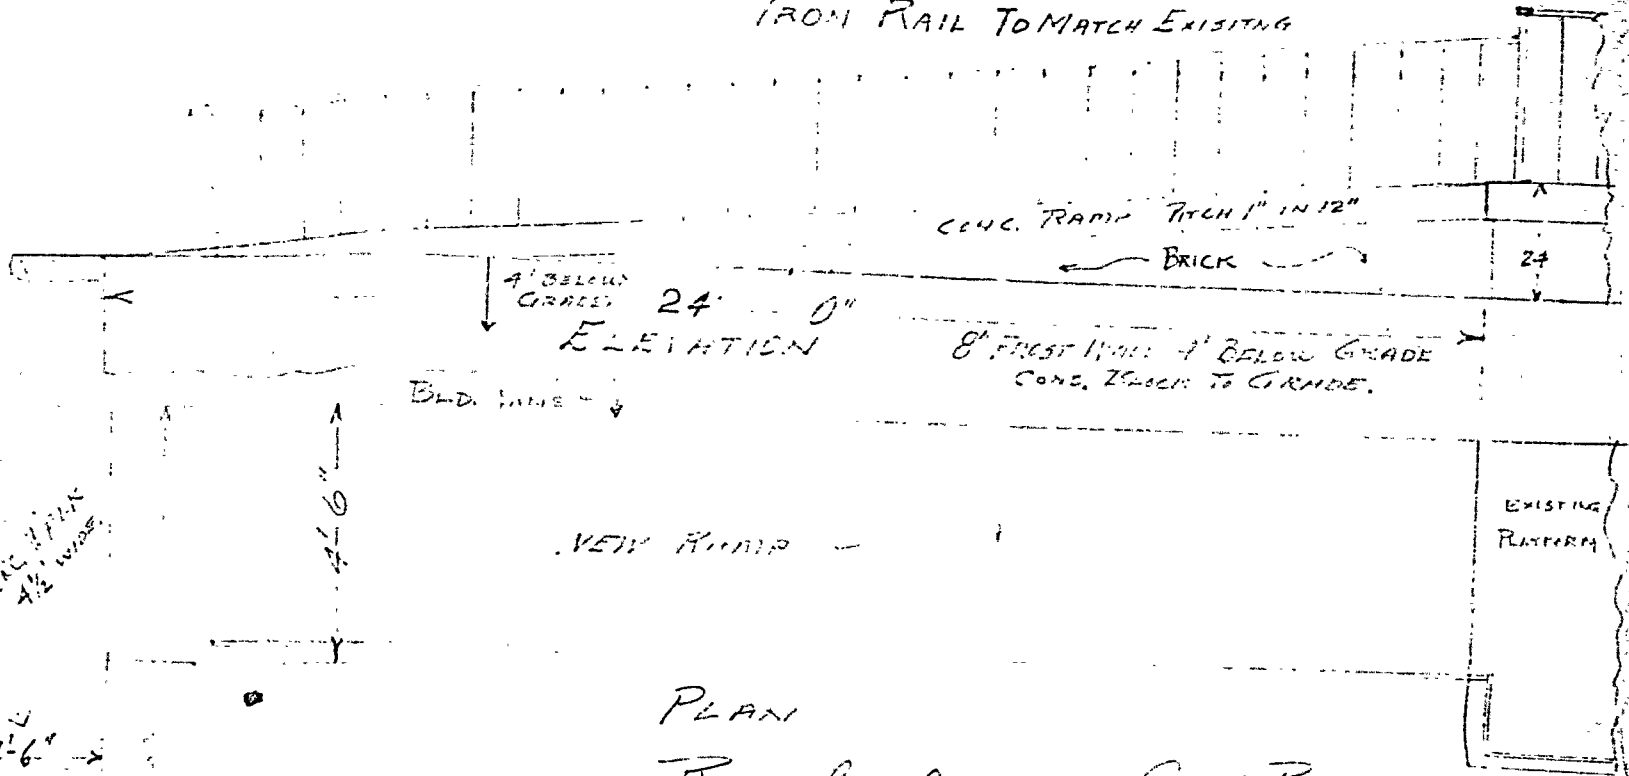 IRON RAIL TO MATCH EXISITNG
CONC. RAMP PITCH 1" IN 12"
BRICK
24
4' BELOW
GRADE
24' 0"
ELEVATION
8" FROST WALL 4' BELOW GRADE
CONC. BLOCK TO GRADE.
BLD. LINE
4'-6"
NEW RAMP
EXISTING
PLATFORM
4½' WIDE.
PLAN